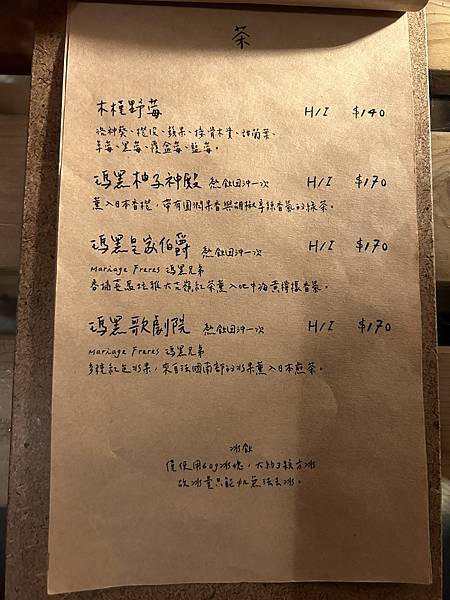 茶
木槿野莓 H/I $140
洛神葵、橙皮、蘋果、接骨木實、甜菊葉、
草莓、黑莓、覆盆莓、藍莓。
瑪黑柚子神殿 熱飲回沖一次 H/I $170
薰入日本香橙,帶有圓潤果香與胡椒亭絲香氣的綠茶。
瑪黑皇家伯爵 熱飲回沖一次 H/I $170
Mariage Freres 瑪黑兄弟
大吉嶺紅茶薰入佛手柑黃檸檬香氣。
瑪黑歌劇院 熱飲回沖一次 H/I $170
Mariage Freres 瑪黑兄弟
多種紅色水果,來自法國南部的水果薰入日本煎茶。
冰飲
僅使用60g冰塊,大約3顆方冰
故冰量只能加無法去冰。